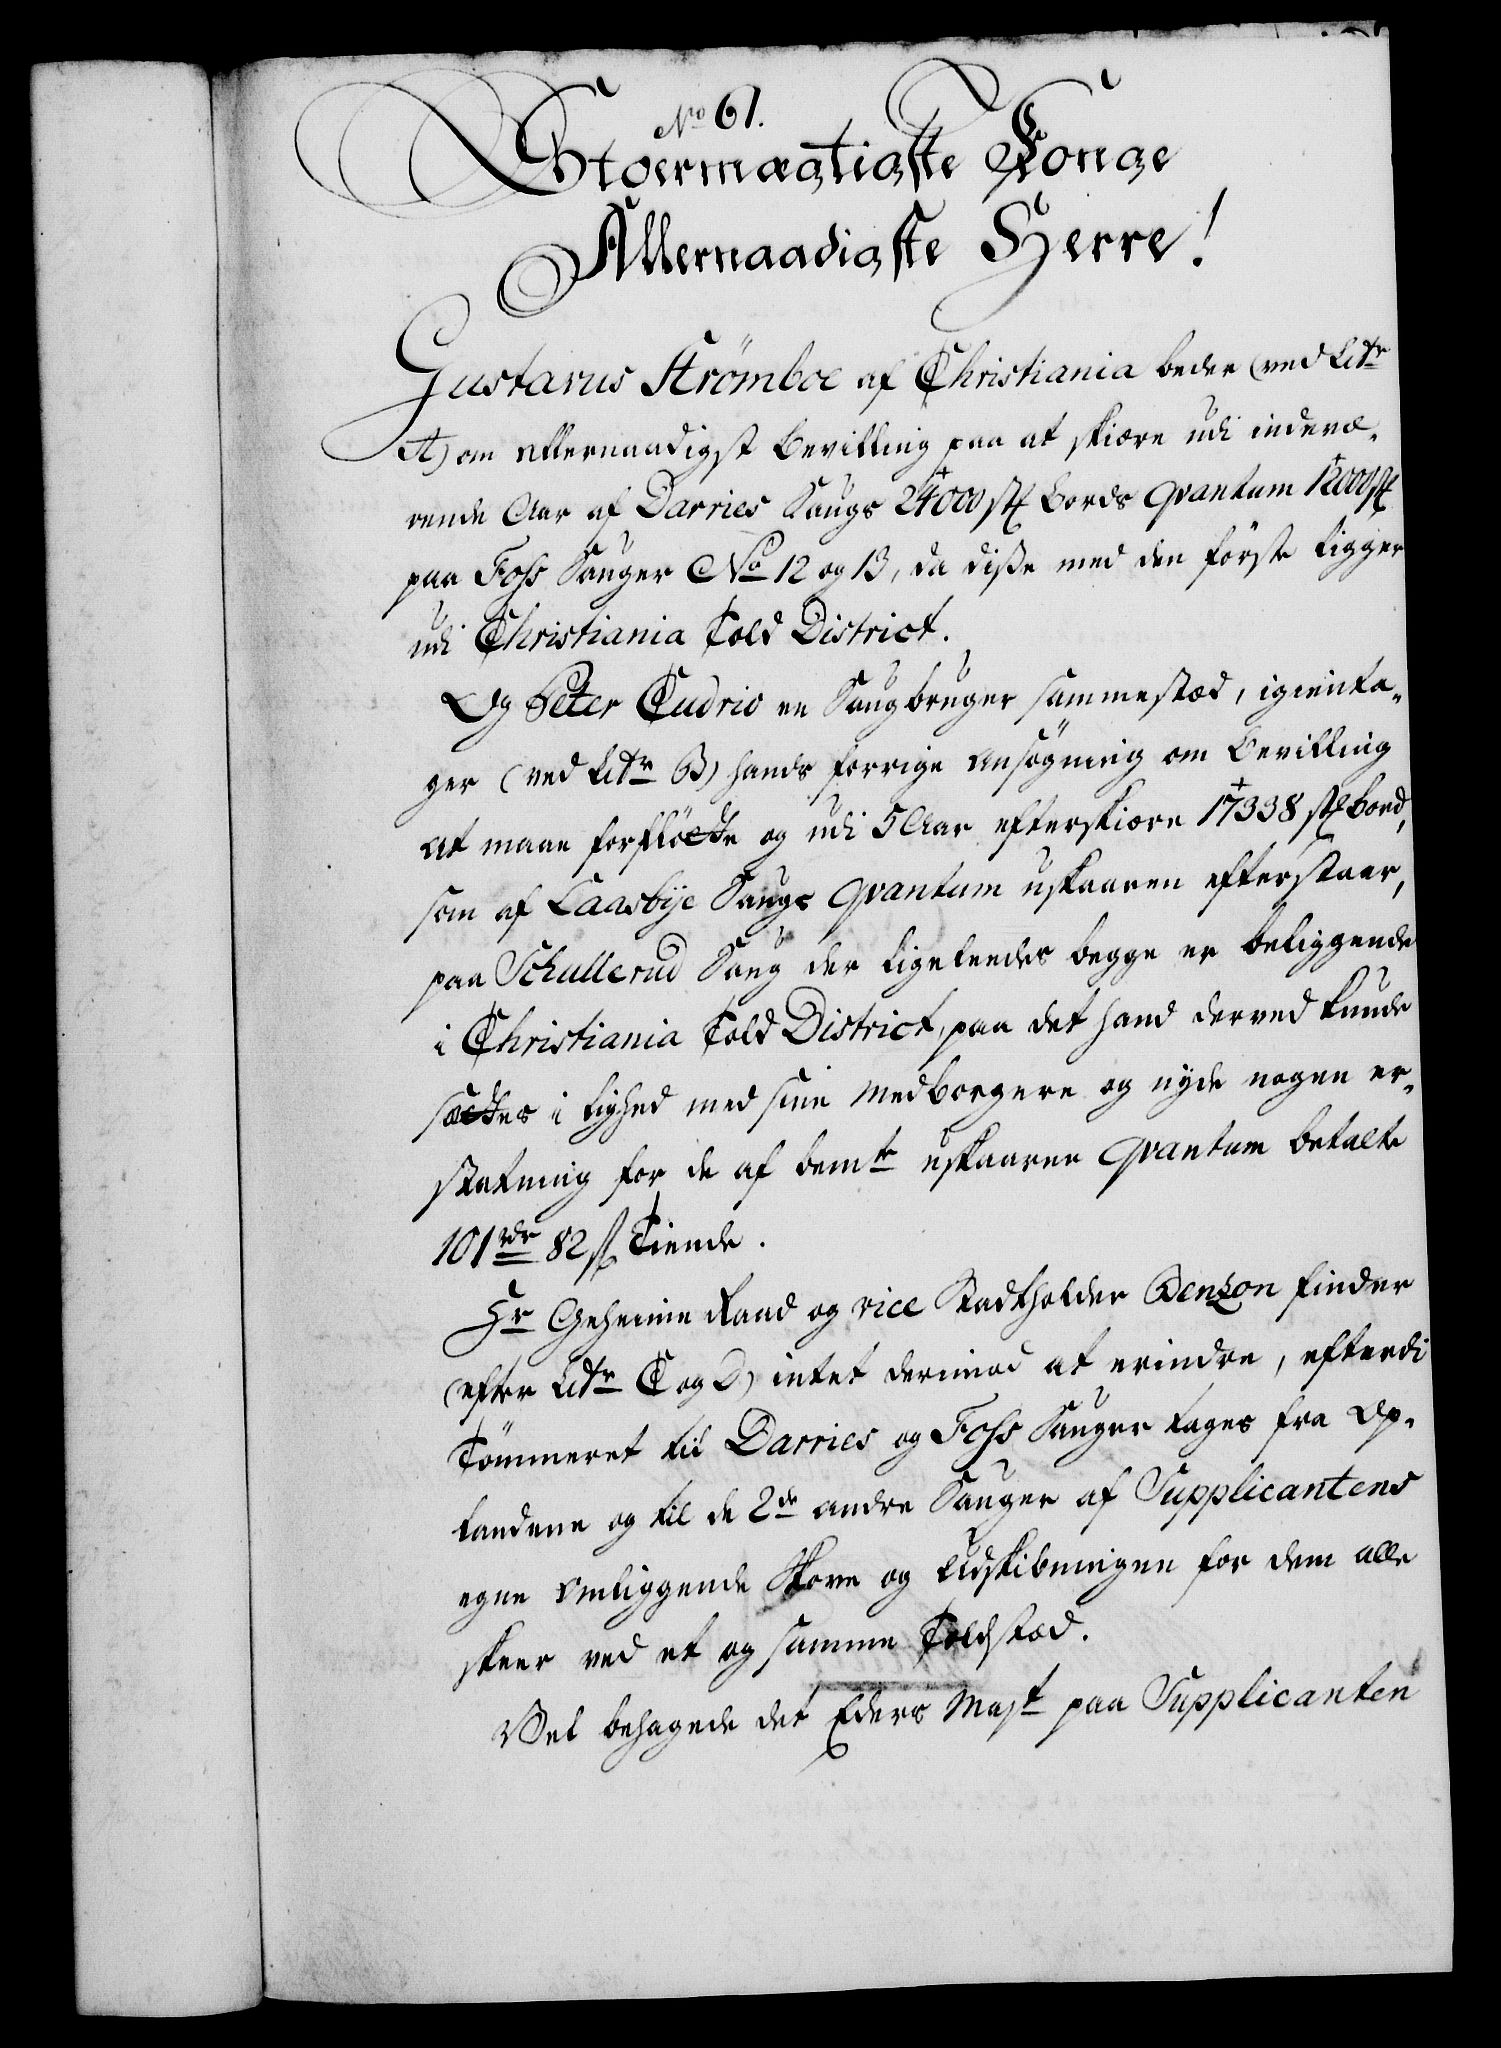 No 61.
Stoermægtigste Konge
Allernaadigste Herre!
Gustavus Strömboe af Christiania beder (ved Litr
A) om allernaadigst Bevilling paa at skiære udi indevæ-
rende Aar af Darries Saugs 24000 st Bords Qvantum 12000 st
paa Foss Sauger No 12 og 13, da disse med den første ligger
udi Christiania Told District.
Og Peter Cudrio en Saugbruger sammestæd, igienta-
ger (ved Litr B) hands forrige Ansøgning om Bevilling
at maae forflötte og udi 5 Aar efterskiære 17338 st bord,
som af Laasbÿe Saugs Qvantum uskaaren efterstaar,
paa Schullerud Saug der ligeleedes begge er beliggende
i Christiania Told District, paa det hand derved kunde
sættes i lighed med sine Medborgere og nÿde nogen er-
statning for de af bemte uskaarne Qvantum betalte
101 rdr 82 s Tiende.
Hr Geheime Raad og vice Stadtholder Benzon finder
(efter Litr C og D) intet derimod at erindre, efterdi
Tömmeret til Darries og Foss Sauger tages fra Op-
landene og til de 2de andre Sauger af Supplicantens
egne omliggende Skove og Udskibningen for dem alle
skeer ved et og samme Toldstæd.
Vel behagede det Eders Mayt paa Supplicanten